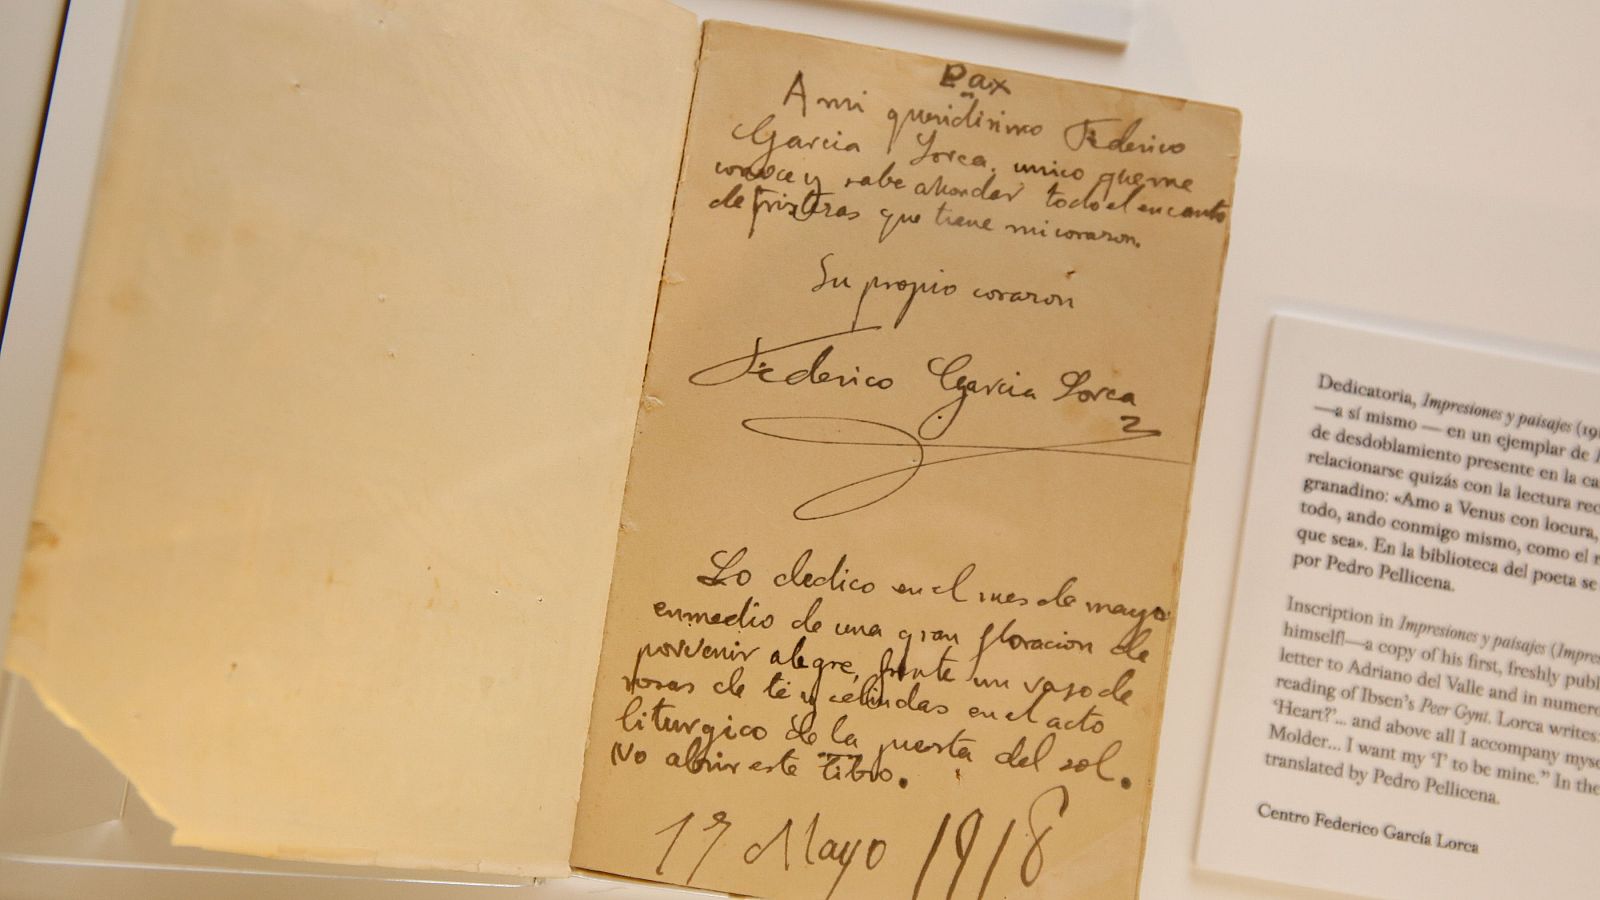 Pax
A mi queridisimo Federico
Garcia Lorca, unico que me
conoce y sabe ahondar todo el encanto
de tristezas que tiene mi corazon.
Su propio corazon
Federico Garcia Lorca
Lo dedico en el mes de mayo
en medio de una gran floracion de
porvenir alegre, frente un vaso de
rosas de té y celindas en el acto
liturgico de la puesta del sol.
No abrir este libro.
Mayo 1918
Dedicatoria, Impresiones y paisajes (19
—a sí mismo — en un ejemplar de
de desdoblamiento presente en la
relacionarse quizás con la lectura
granadino: «Amo a Venus con locura,
todo, ando conmigo mismo, como el
que sea». En la biblioteca del poeta se
por Pedro Pellicena.
Inscription in Impresiones y paisajes
himself!—a copy of his first, freshly
letter to Adriano del Valle and in
reading of Ibsen's Peer Gynt. Lorca writes:
'Heart?'... and above all I accompany
Molder... I want my 'I' to be mine." In the
translated by Pedro Pellicena.
Centro Federico García Lorca